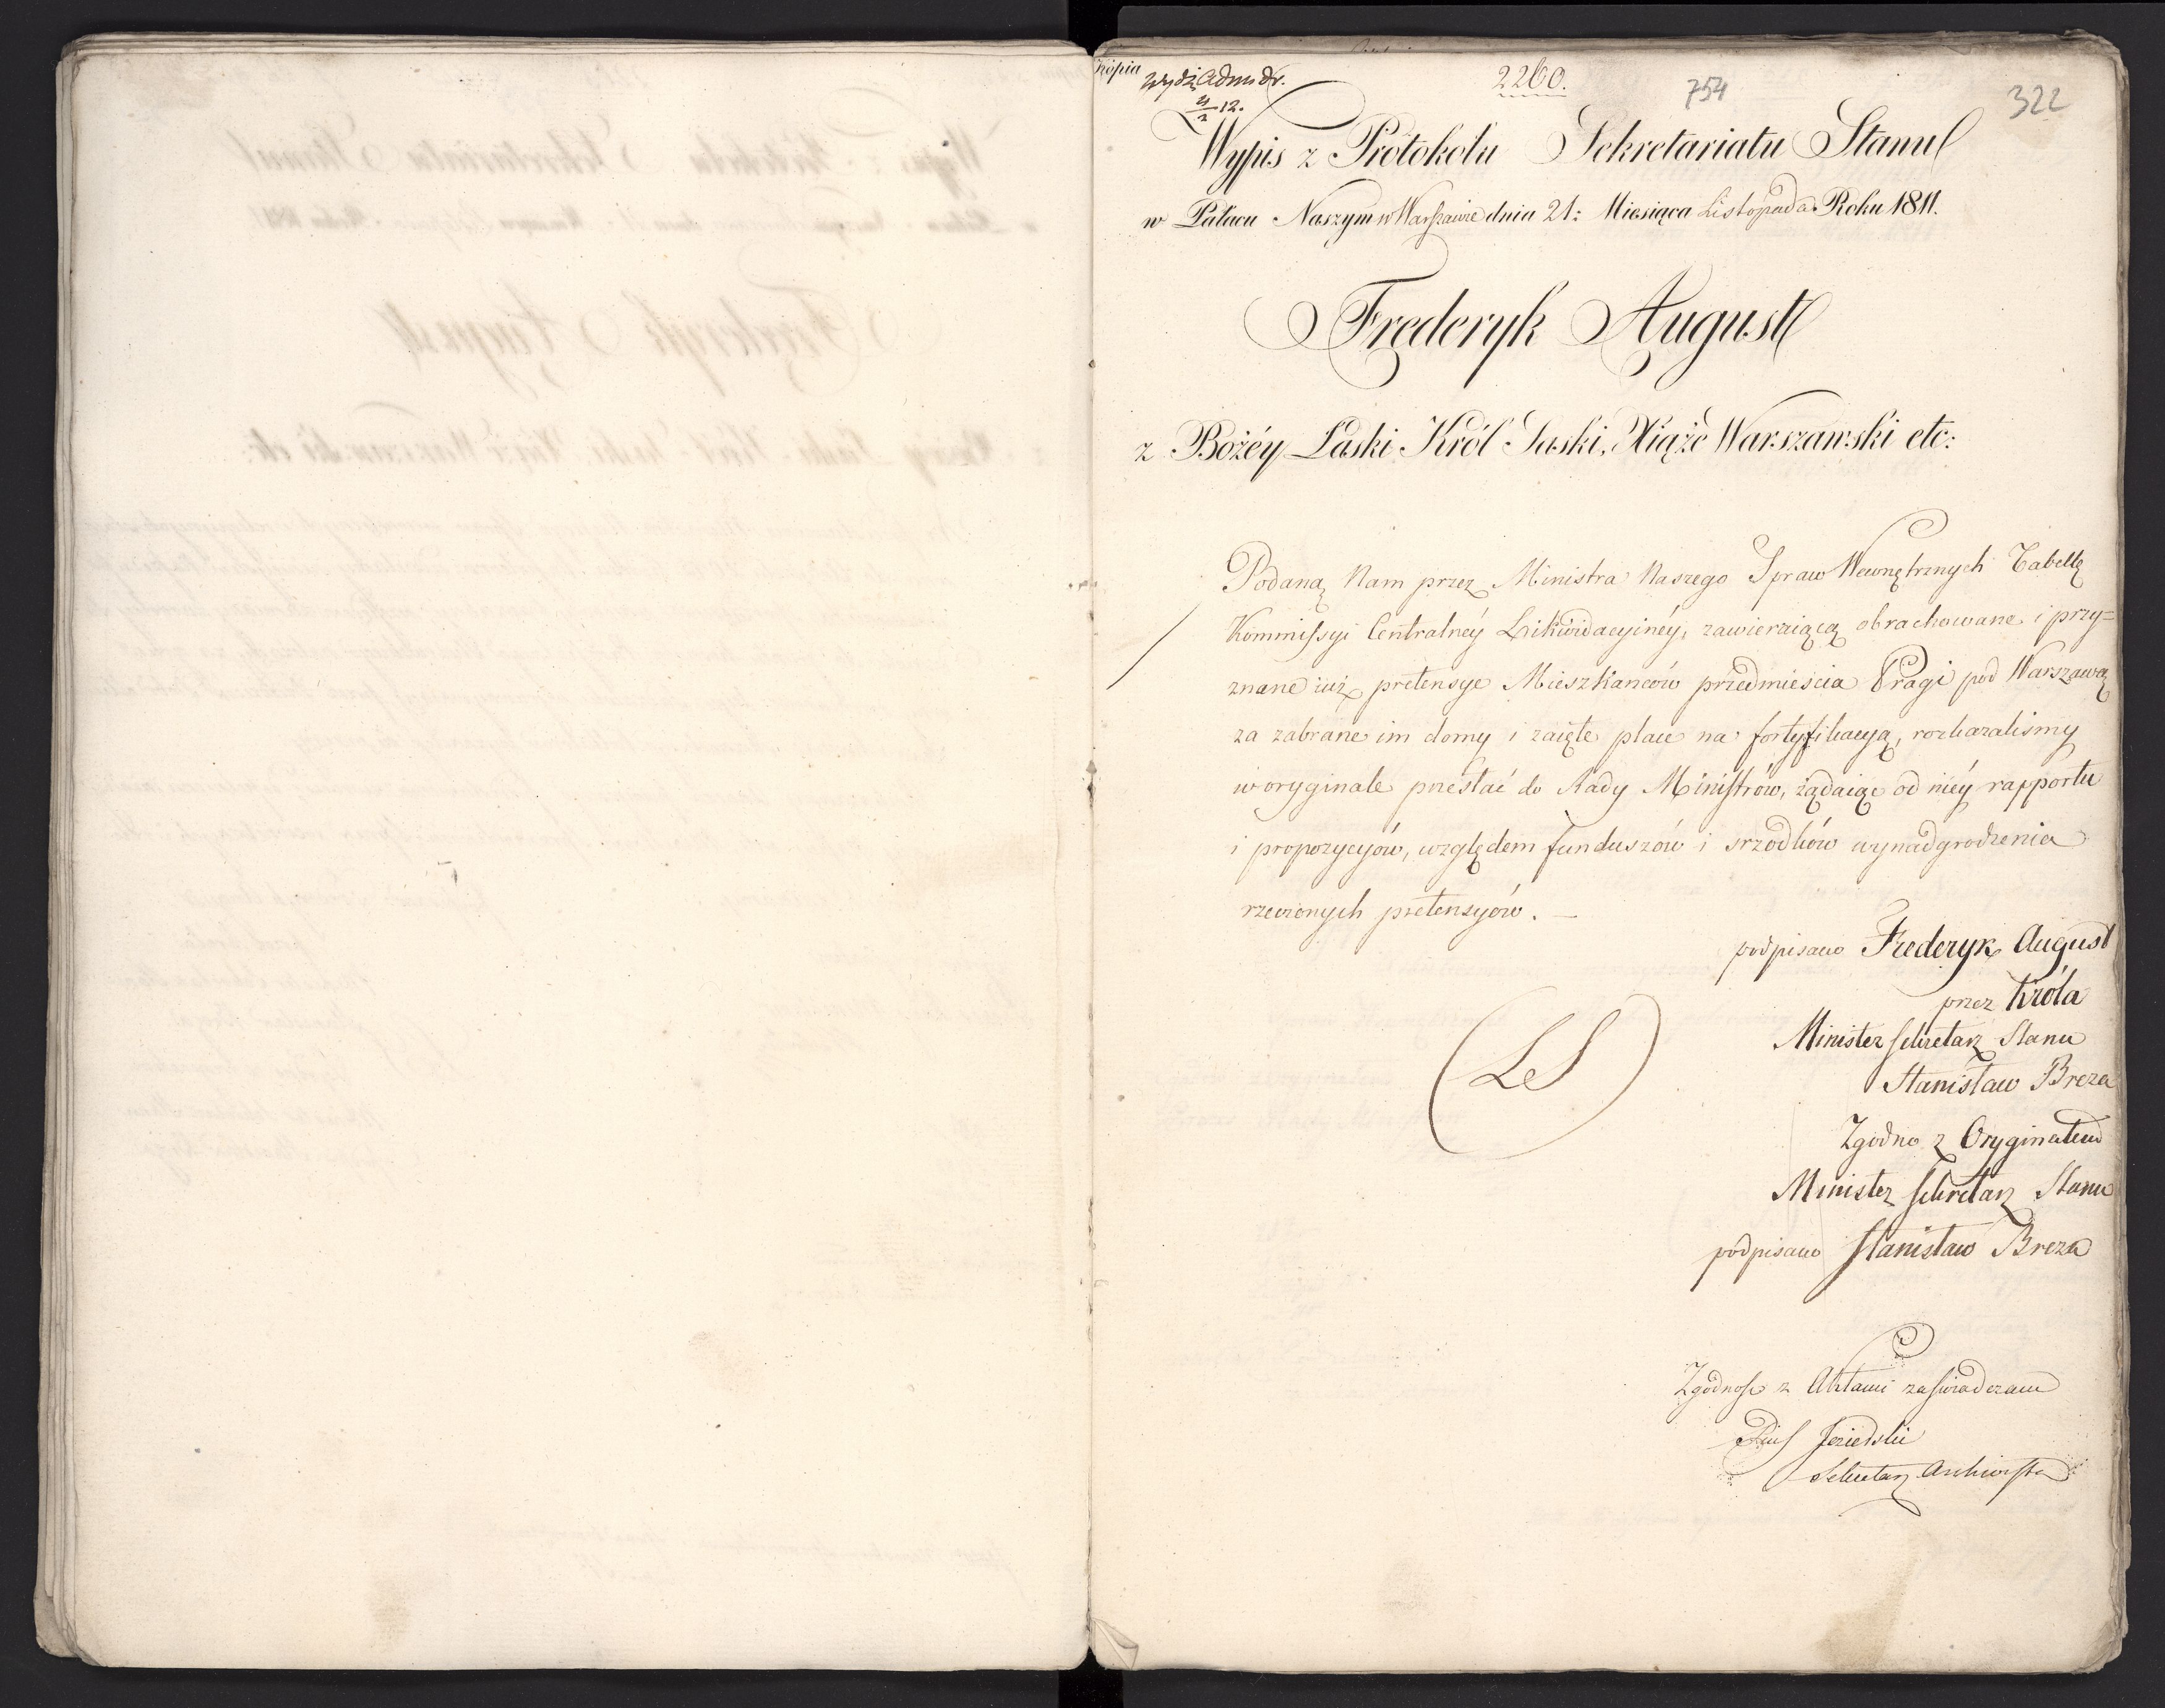 Kopia
wydz. Admndr.
2260.
754
322
4/2 12.
Wypis z Protokołu Sekretariatu Stanu
w Pałacu Naszym w Warszawie dnia 21: Miesiąca Listopada Roku 1811.
Frederyk August
z Bożéy Łaski Król Saski, Xiążę Warszawski etc:
Podaną Nam przez Ministra Naszego Spraw Wewnętrznych Tabellę
Kommissyi Centralnéy Likwidacyinéy, zawieraiącą obrachowane i przy=
znane iuż pretensye Mieszkańców przedmieścia Pragi pod Warszawą
za zabrane im domy i zaięte place na fortyfikacyą, rozkazaliśmy
w oryginale przesłać do Rady Ministrów, żądaiąc od niéy rapportu
i propozycyów, względem funduszów i srzodków wynadgrodzenia
rzeczonych pretensyów. —
podpisano Frederyk August
przez Króla
Minister Sekretarz Stanu
Stanisław Breza
(LS)
Zgodno z Oryginałem
Minister Sekretarz Stanu
podpisano Stanisław Breza
Zgodność z Aktami zaświadczam
Sekretarz Archiwista